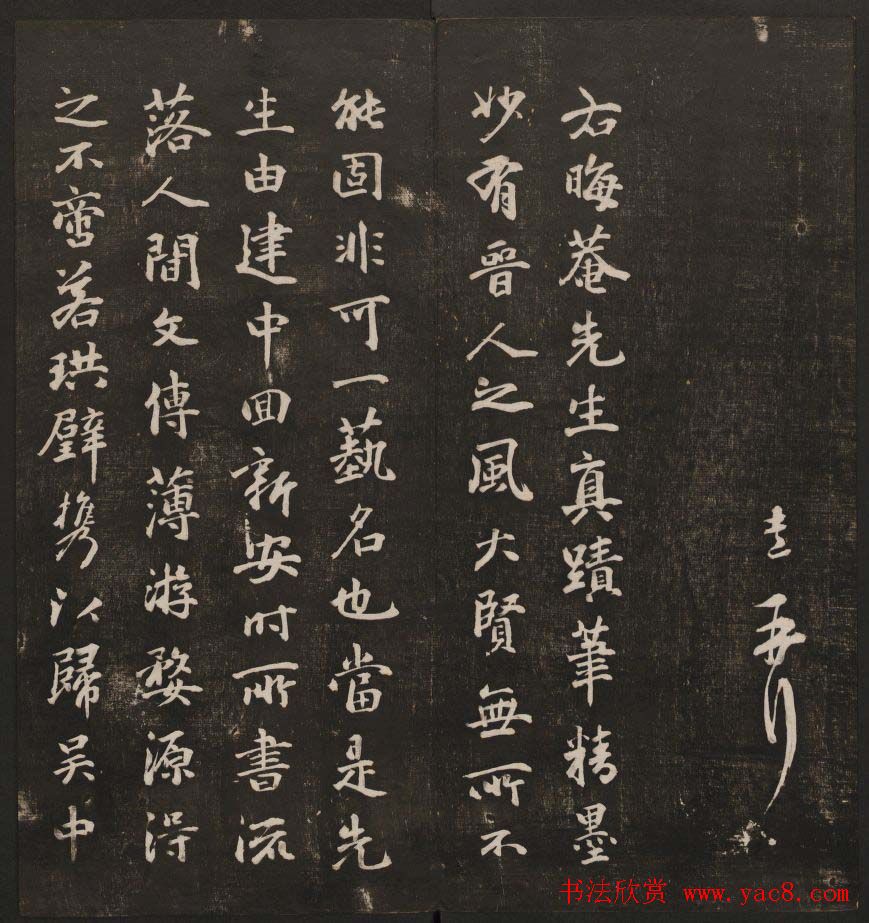 右晦菴先生真蹟筆精墨
妙有晉人之風大賢無所不
能固非可一藝名也當是先
生由建中回新安时所書流
落人間文傳薄游婺源得
之不啻若珙璧携以歸吴中
书法欣赏 www.yac8.com